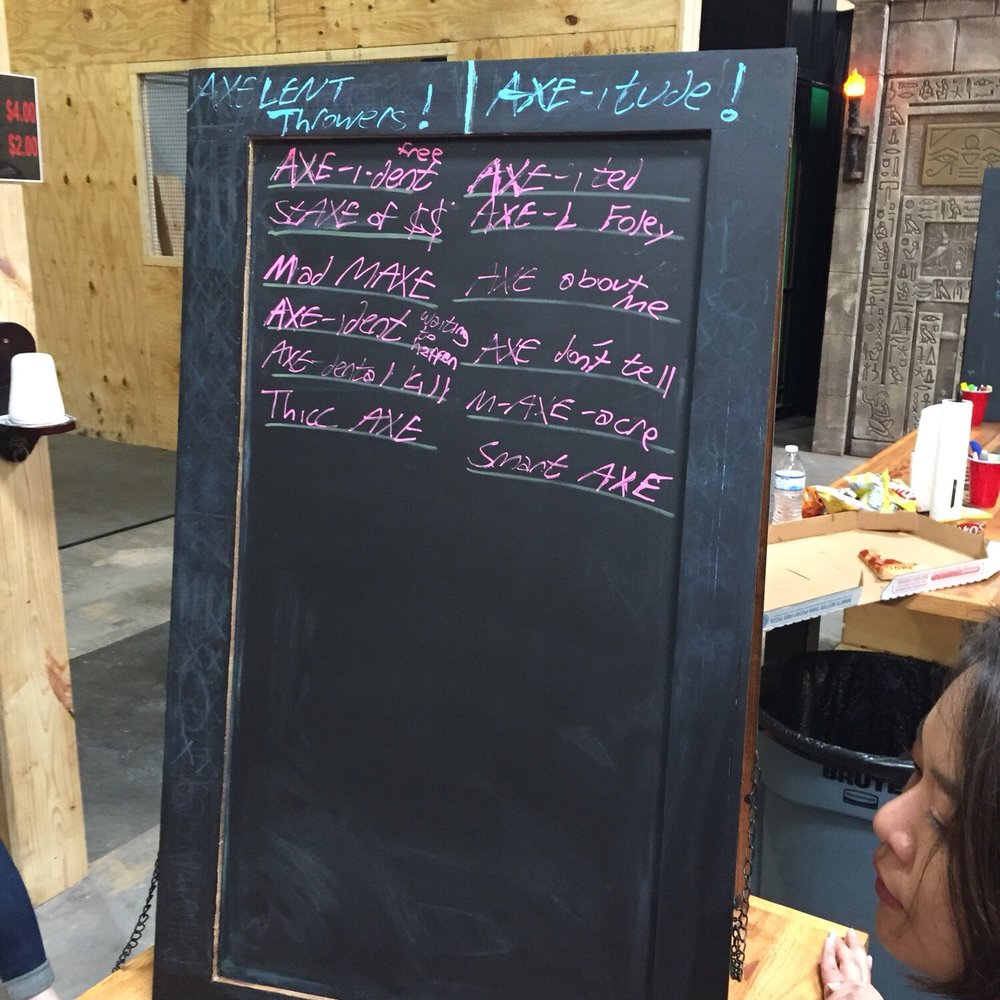 $4.00
$2.00
AXELENT
Throwers!
AXE-itude!
AXE-i-dent free
StAXE of $$
Mad MAXE
AXE-ident waiting
to
happen
AXE-dental kill
Thicc AXE
AXE-ited
AXE-L Foley
AXE about
me
AXE don't tell
M-AXE-acre
Smart AXE
BRUTE
Rubbermaid